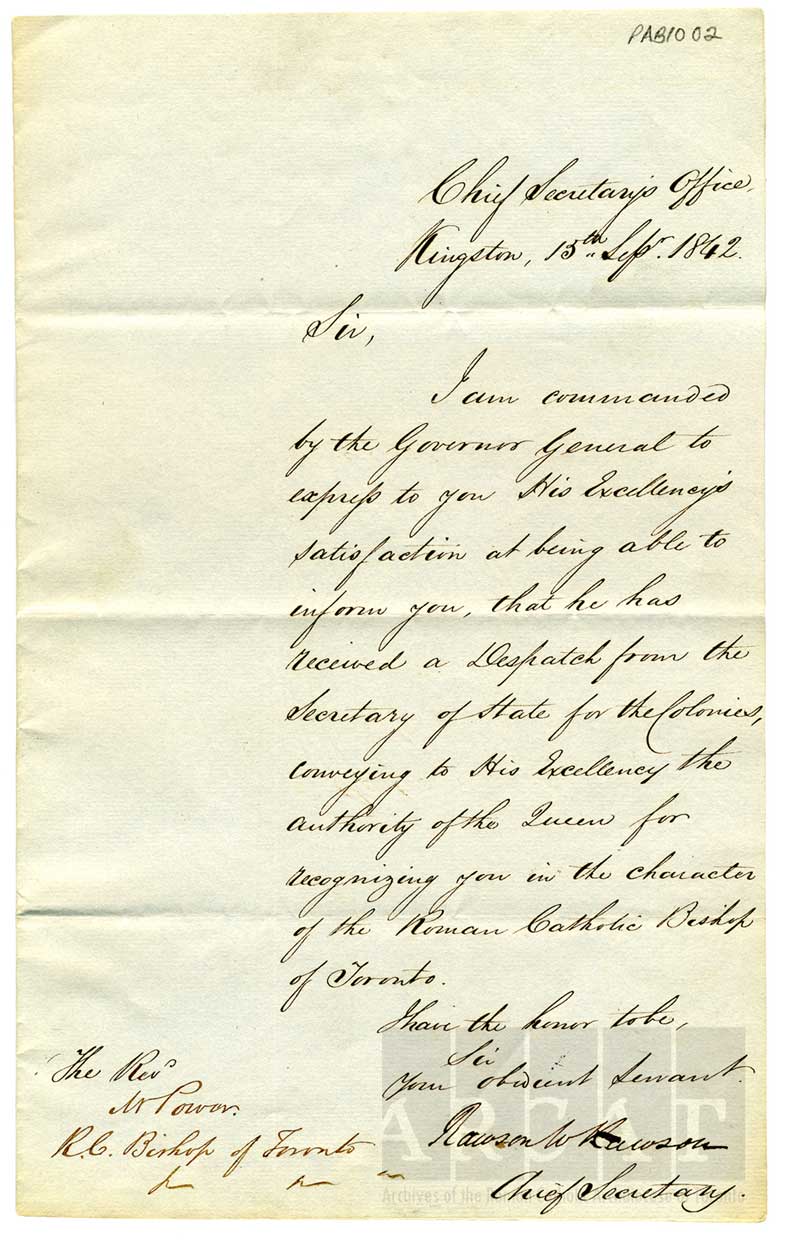 PAB10 02
Chief Secretary's Office,
Kingston, 15th Sepr. 1842.
Sir,
I am commanded
by the Governor General to
express to you His Excellency's
satisfaction at being able to
inform you, that he has
received a Despatch from the
Secretary of State for the Colonies,
conveying to His Excellency the
authority of the Queen for
recognizing you in the character
of the Roman Catholic Bishop
of Toronto.
I have the honor to be,
Sir
Your obedient Servant.
Rawson W Rawson
Chief Secretary.
The Revd
Mr Power.
R.C. Bishop of Toronto
ARCAT
Archives of the